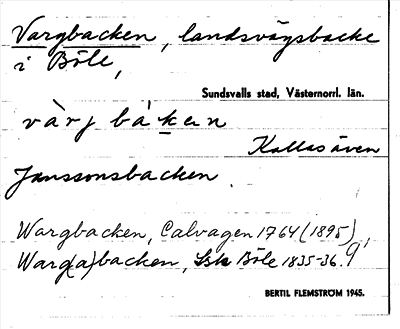 Vargbacken, landsvägsbacke
i Böle,
Sundsvalls stad, Västernorrl. län.
vàrj bàken
Kallas även
Janssonsbacken.
Wargbacken, Calvagen 1764 (1895),
Warg(a)backen, Böle 1835-36.
BERTIL FLEMSTRÖM 1945.